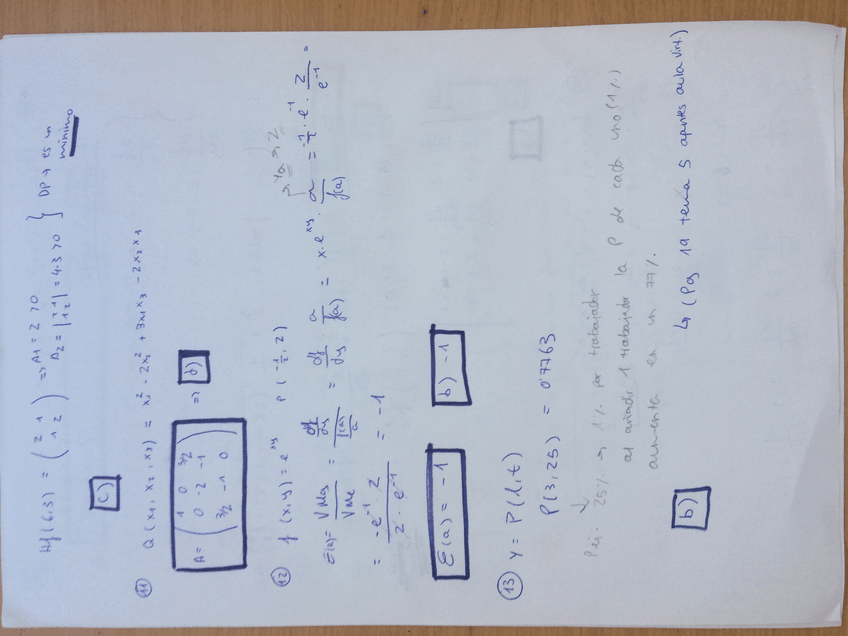 Hf(6,3) = ( 2 1 / 1 2 ) ⇒ A1 = 2 > 0 } DP → es un
A2 = | 2 1 / 1 2 | = 4-3 > 0 mínimo
c)
11 Q(x1, x2, x3) = x1² - 2x2² + 3x1x3 - 2x2x3
A = ( 1 0 3/2 / 0 -2 -1 / 3/2 -1 0 ) ⇒ d)
12 f(x,y) = e^xy P(-1/2, 2)
⇒ Ya ⇒ 2
E(a) = VMg / VMe = df/dy / f(a)/a = df/dy · a/f(a) = x·e^xy · a/f(a) = -1/2 · e^-1 · 2/e^-1 =
= -e^-1 · 2 / 2 · e^-1 = -1
E(a) = -1 b) -1
13 Y = P(l,t)
P(3,25) = 0'7763
Pej.- 25% ⇒ 1% por trabajador
al añadir 1 trabajador la P de cada uno (1%)
aumenta en un 77%.
b) ↳ (Pag 19 tema 5 apuntes aula virt.)